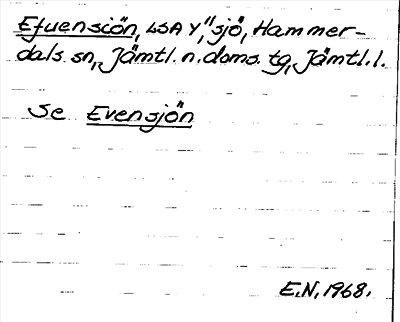 Efuensiön, LSA Y, "sjö, Hammer-
dals sn, Jämtl. n. doms. tg, Jämtl. l.
Se Evensjön
E.N. 1968.